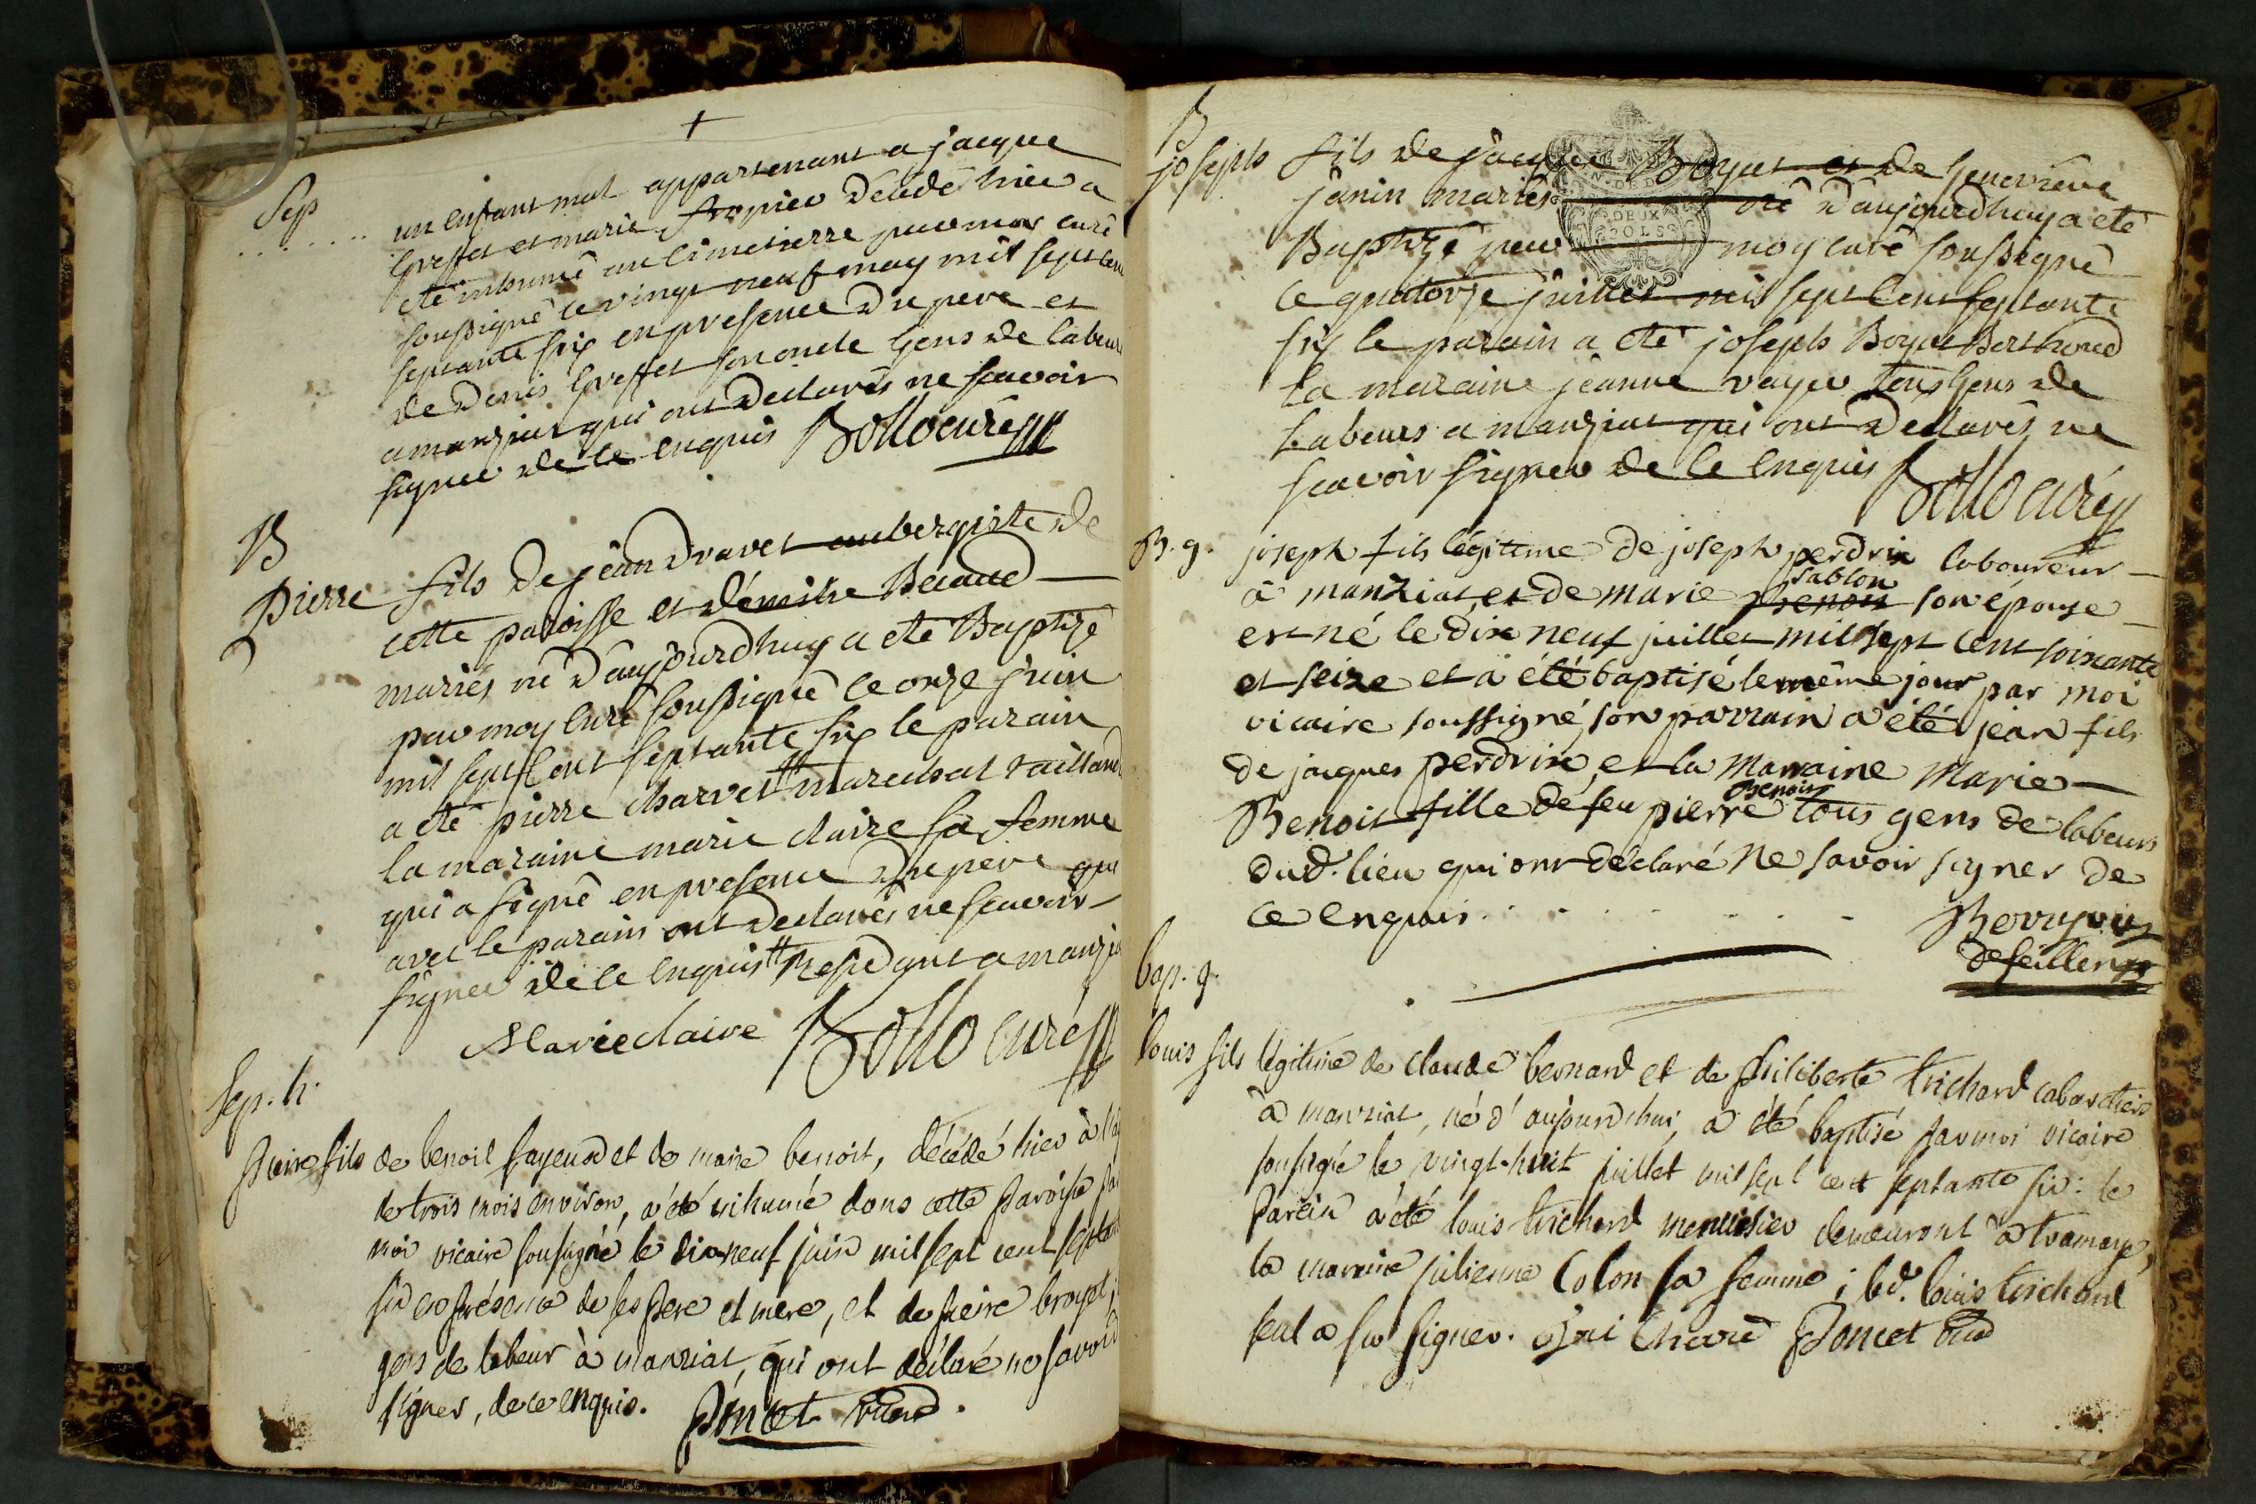 +
Sep
un enfant mal appartenant a jacque
Greffet et marie decédé hier a
eté inhumé au cimetierre par moy curé
soussigné le vingt neuf may mil sept cent
septante six en presence du pere et
de Denis Greffet son oncle gens de labeur
a manziat qui ont declarés ne scavoir
signer de ce enquis Bollo curé
B
Pierre fils de jean Dravet aubergiste de
cette paroisse et Bécaud
mariés né d'aujourdhuy a eté Baptizé
par moy curé soussigné le onze juin
mil sept cent septante six le parain
a eté pierre charvet marechal tailland
la maraine marie claire sa femme
qui a signé en presence du pere qui
avec le parain ont declarés ne scavoir
signer de ce enquis residant a manzia
Marie claire Bollo curé
Sep. h.
Pierre fils de benoit fayend et de marie benoit, décédé hier à l'a
de trois mois environ, a été inhumé dans cette Paroisse Par
moi vicaire soussigné le dix neuf juin mil sept cent septan
six en présence de ses Pere et mere, et de Pierre broyet,
gens de labeur à manziat, qui ont déclaré ne savoir
signer, de ce enquis. Poncet vicr.
B
joseph fils de jacque Boyat et de Genevieve
janin mariés né d'aujourdhuy a eté
Baptizé par moy curé soussigné
le quatorze juillet mil sept cent septante
six le parain a eté joseph Boyat Berthoud
la maraine jeanne voyer tous gens de
labeurs a manziat qui ont declarés ne
scavoir signer de ce enquis Bollo curé
B. g. joseph fils légitime de joseph perdrix laboureur
sablon
à manziat, et de marie Benoit son épouse
est né le dix neuf juillet mil sept cent soixante
et seize et a été baptisé le même jour par moi
vicaire soussigné, son parrain a été jean fils
de jacques perdrix, et la marraine Marie
Benoit
Benoit fille de feu pierre tous gens de labeurs
dud. lieu qui ont déclaré ne savoir signer de
ce enquis
bap. g.
louis fils légitime de claude bernard et de Philiberte trichard cabaretiers
à manziat, né d'aujourdhui, a été baptisé par moi vicaire
soussigné le vingt-huit juillet mil sept cent septante six: le
Parain a été louis trichard menuisier demeurant à tramaye,
la marraine julienne Colon sa femme; led. louis trichard
seul a su signer. Poncet vicr